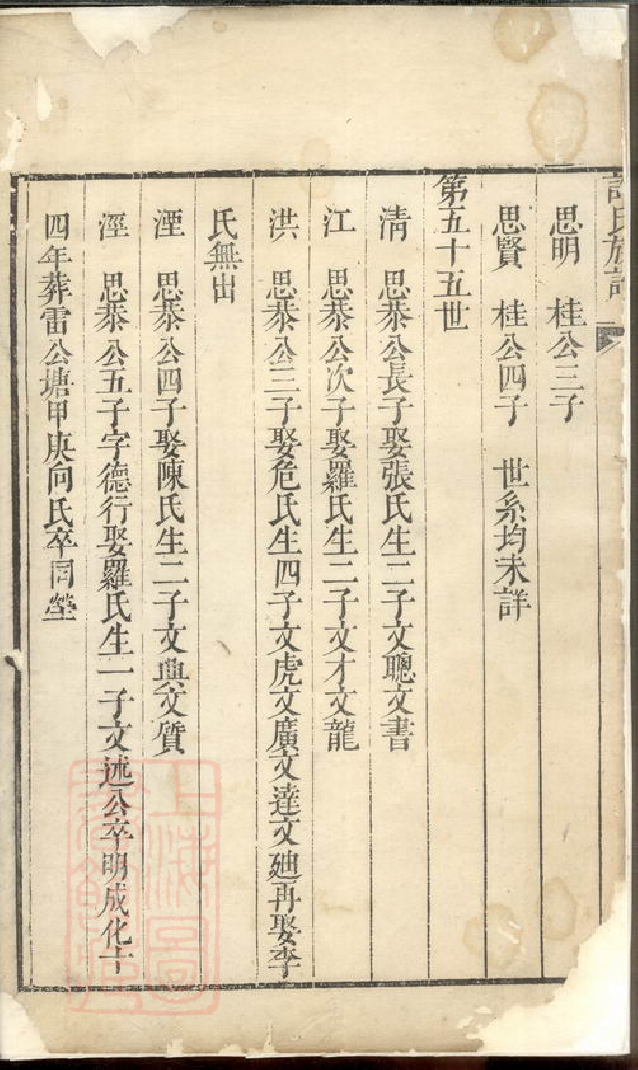 許氏族譜
思明　桂公三子
思賢　桂公四子　世系均未詳
第五十五世
清　思恭公長子娶張氏生二子文聰文書
江　思恭公次子娶羅氏生二子文才文龍
洪　思恭公三子娶危氏生四子文虎文廣文達文廸再娶李
氏無出
湮　思恭公四子娶陳氏生二子文典文質
涇　思恭公五子字德行娶羅氏生一子文述公卒明成化十
四年葬雷公塘甲庚向氏卒同塋
上海圖
書館藏